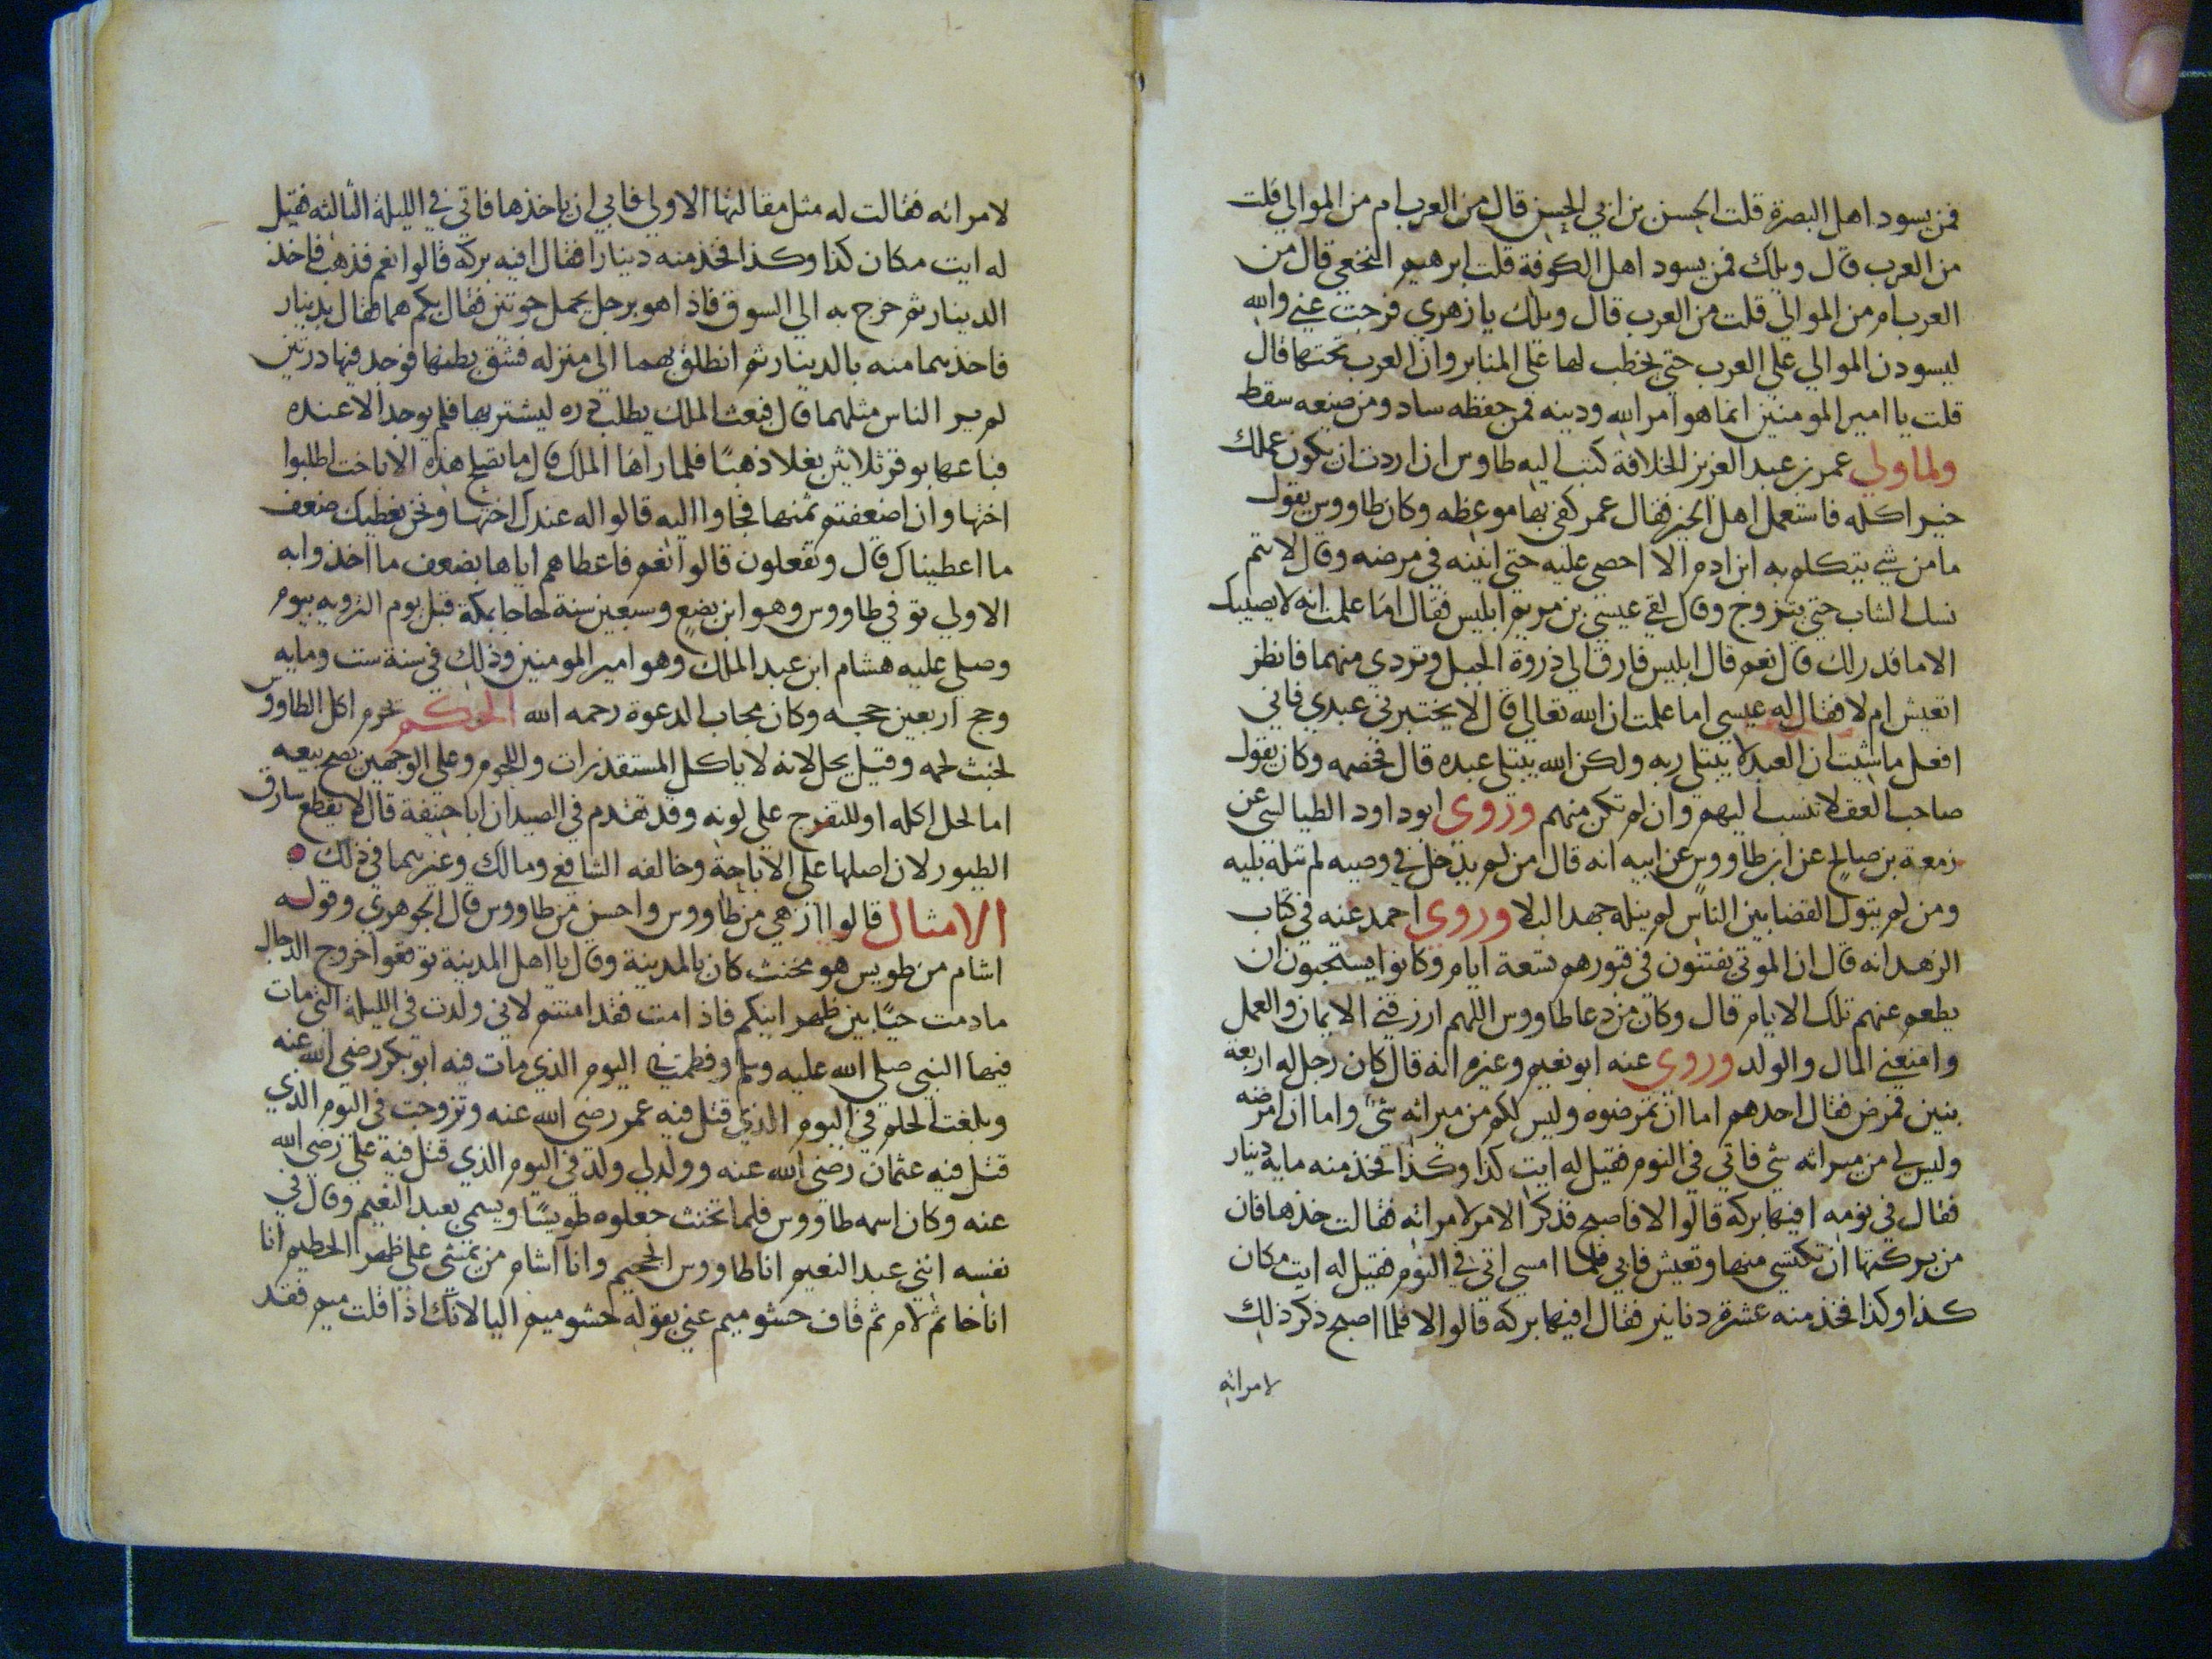 فمن يسود اهل البصرة قلت الحسن بن ابي الحسن قال من العرب ام من الموالي قلت
من العرب قال ويلك فمن يسود اهل الكوفة قلت ابرهيم النخعي قال من
العرب ام من الموالي قلت من العرب قال ويلك يا زهري فرجت عني والله
ليسودن الموالي على العرب حتى يخطب لها على المنابر وان العرب تحتها قال
قلت يا امير المومنين انما هو امر الله ودينه فمن حفظه ساد ومن ضيعه سقط
ولما ولي عمر بن عبد العزيز الخلافة كتب اليه طاوس ان اردت ان يكون عملك
خيرا كله فاستعمل اهل الخير فقال عمر كفى بها موعظه وكان طاووس يقول
ما من شي يتكلم به ابن ادم الا احصى عليه حتى انينه في مرضه وقال لا يتم
نسك الشاب حتى يتزوج وقال لقي عيسى بن مريم ابليس فقال اما علمت انه لا يصيبك
الا ما قدر لك قال نعم قال ابليس فارق الى ذروة الجبل وتردي منهما فانظر
اتعيش ام لا فقال له عيسى اما علمت ان الله تعالى قال لا يختبرني عبدي فاني
افعل ما شيت ان العبد لا يبتلي ربه ولكن الله يبتلي عبده قال فخصمه وكان يقول
صاحب العقل تنسب اليهم وان لم تكن منهم وروى ابو داود الطيالسي عن
زمعة بن صالح عن ابن طاووس عن ابيه انه قال من لم يدخل في وصيه لم تنله بليه
ومن لم يتول القضا بين الناس لم ينله جهد البلا وروى احمد عنه في كتاب
الزهد انه قال ان الموتى يفتنون في قبورهم سبعة ايام وكانوا يستحبون ان
يطعم عنهم تلك الايام قال وكان من دعا طاووس اللهم ارزقني الايمان والعمل
وامنعني المال والولد وروى عنه ابو نعيم وغيره انه قال كان رجل له اربعة
بنين فمرض فقال احدهم اما ان تمرضوه وليس لكم من ميراثه شي واما ان امرضه
وليس لي من ميراثه شي فاتي في النوم فقيل له ايت كذا وكذا فخذ منه ماية دينار
فقال في نومه افيها بركه قالوا لا فاصبح فذكر الامر لامراته فقالت خذها فان
من بركتها ان تكتسي منها وتعيش فابى فلما امسى اتي في النوم فقيل له ايت مكان
كذا وكذا فخذ منه عشرة دنانير فقال افيها بركه قالوا لا فلما اصبح ذكر ذلك
لامراته
لامراته فقالت له مثل مقالتها الاولى فابى ان ياخذها فاتي في الليلة الثالثه فقيل
له ايت مكان كذا وكذا فخذ منه دينارا فقال افيه بركه قالوا نعم فذهب فاخذ
الدينار ثم خرج به الى السوق فاذا هو برجل يحمل حوتين فقال بكم هما فقال بدينار
فاخذهما منه بالدينار ثم انطلق بهما الى منزله فشق بطنها فوجد فيها درتين
لم ير الناس مثلهما قال فبعث الملك يطلب دره ليشتريها فلم يوجد الا عنده
فباعها بوقر ثلاثين بغلا ذهبا فلما راها الملك قال ما تصلح هذه الا باخت اطلبوا
اختها وان اضعفتم ثمنها فجاوا اليه قالوا له عندك اختها ونحن نعطيك ضعف
ما اعطيناك قال وتفعلون قالوا نعم فاعطاهم اياها بضعف ما اخذوا به
الاولي توفي طاووس وهو ابن بضع وسبعين سنة حاجا بمكة قبل يوم الترويه بيوم
وصلى عليه هشام ابن عبد الملك وهو امير المومنين وذلك في سنة ست ومايه
وحج اربعين حجه وكان مجاب الدعوة رحمه الله الحكم يحرم اكل الطاووس
لخبث لحمه وقيل يحل لانه لا ياكل المستقذرات واللحوم وعلى الوجهين يصح بيعه
اما لحل اكله او للتفرج على لونه وقد تقدم في الصيد ان ابا حنيفة قال لا يقطع سارق
الطيور لان اصلها على الاباحة وخالفه الشافعي ومالك وغيرهما في ذلك
الامثال قالوا ازهى من طاووس واحسن من طاووس قال الجوهري وقوله
اشام من طويس هو مخنث كان بالمدينة وقال يا اهل المدينة توقعوا خروج الدجال
ما دمت حيا بين ظهرانيكم فاذا مت فقد امنتم لاني ولدت في الليلة التي مات
فيها النبي صلى الله عليه وسلم وفطمت في اليوم الذي مات فيه ابو بكر رضي الله عنه
وبلغت الحلم في اليوم الذي قتل فيه عمر رضي الله عنه وتزوجت في اليوم الذي
قتل فيه عثمان رضي الله عنه وولد لي ولد في اليوم الذي قتل فيه علي رضي الله
عنه وكان اسمه طاووس فلما تخنث جعلوه طويسا ويسمى بعبد النعيم وقال في
نفسه انني عبد النعيم انا طاووس الجحيم وانا اشام من يمشي على ظهر الحطيم انا
انا خا ثم لام ثم قاف حشو ميم عني بقوله حشو ميم اليا لانك اذا قلت ميم فقد